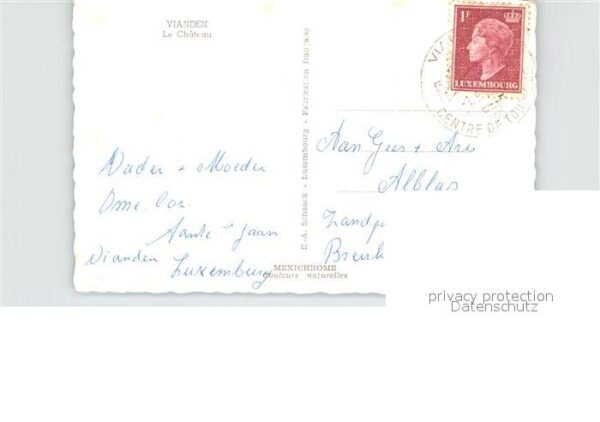 VIANDEN
Le Château
Vader + Moeder
Ome Cor
Tante Jaan
Vianden Luxemburg
E.-A. Schaack - Luxembourg - Fabrication française
MEXICHROME
couleurs naturelles
1F
LUXEMBOURG
CENTRE DE TOU
Aan Gees + Ari
Alblas
Zandp
Breuk
privacy protection
Datenschutz